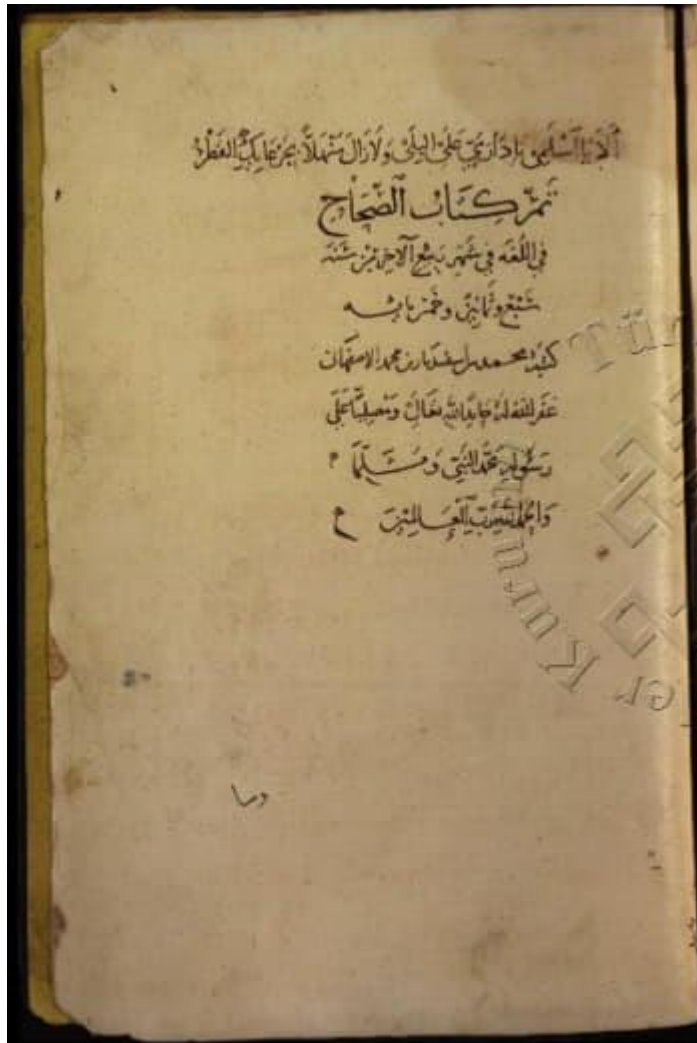 ألا يا اسلمي يا دار مي على البلى ولا زال منهلا بجرعائك القطر
تم كتاب الصحاح
في اللغة في شهر ربيع الآخر من سنة
سبع وثمانين وخمس مائة
كتبه محمد بن اسفنديار بن محمد الاصفهاني
غفر الله له حامدا لله تعالى ومصليا على
رسوله محمد النبي ومسلما
والحمد لله رب العالمين
وما